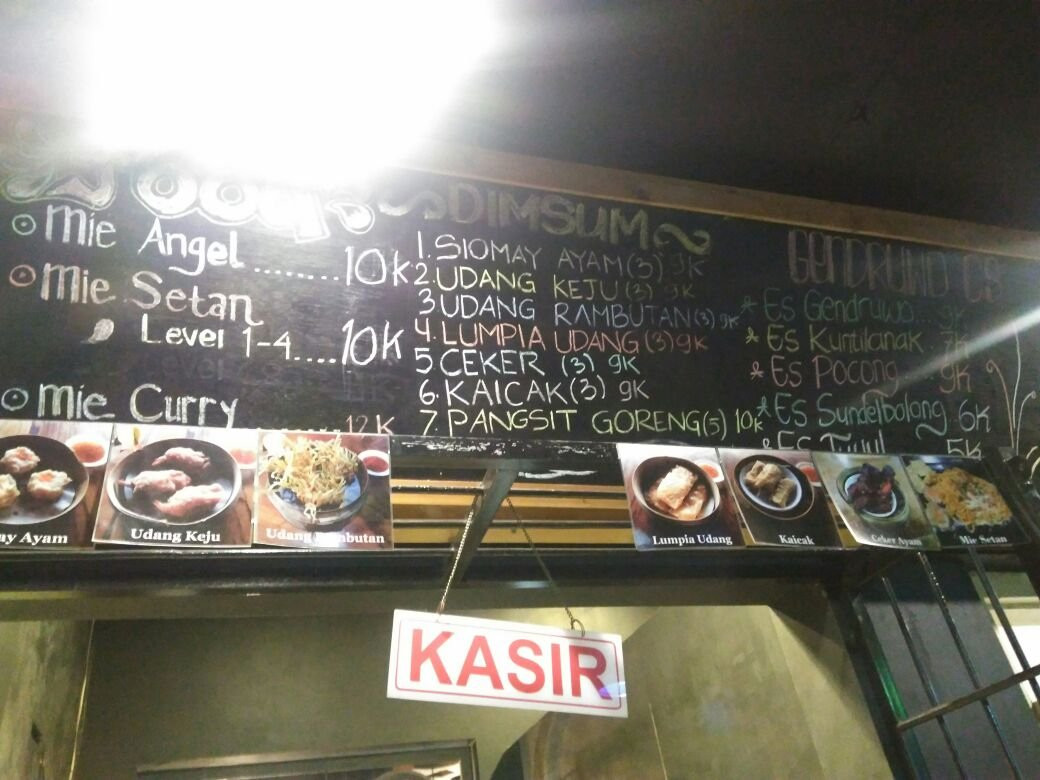 Mie Angel ........10k
Mie Setan
Level 1-4.....10k
Mie Curry ........12k
DIMSUM
1. SIOMAY AYAM (3) 9K
2. UDANG KEJU (3) 9K
3 UDANG RAMBUTAN (3) 9K
4. LUMPIA UDANG (3) 9K
5 CEKER (3) 9K
6. KAICAK (3) 9K
7. PANGSIT GORENG (5) 10k
GENDRUWO CS
Es Gendruwo..
Es Kuntilanak.. 7k
Es Pocong.. 9k
Es Sundelbolong 6k
Es Tuyul 5k
ay Ayam
Udang Keju
Udang Rambutan
Lumpia Udang
Kaicak
Ceker Ayam
Mie Setan
KASIR